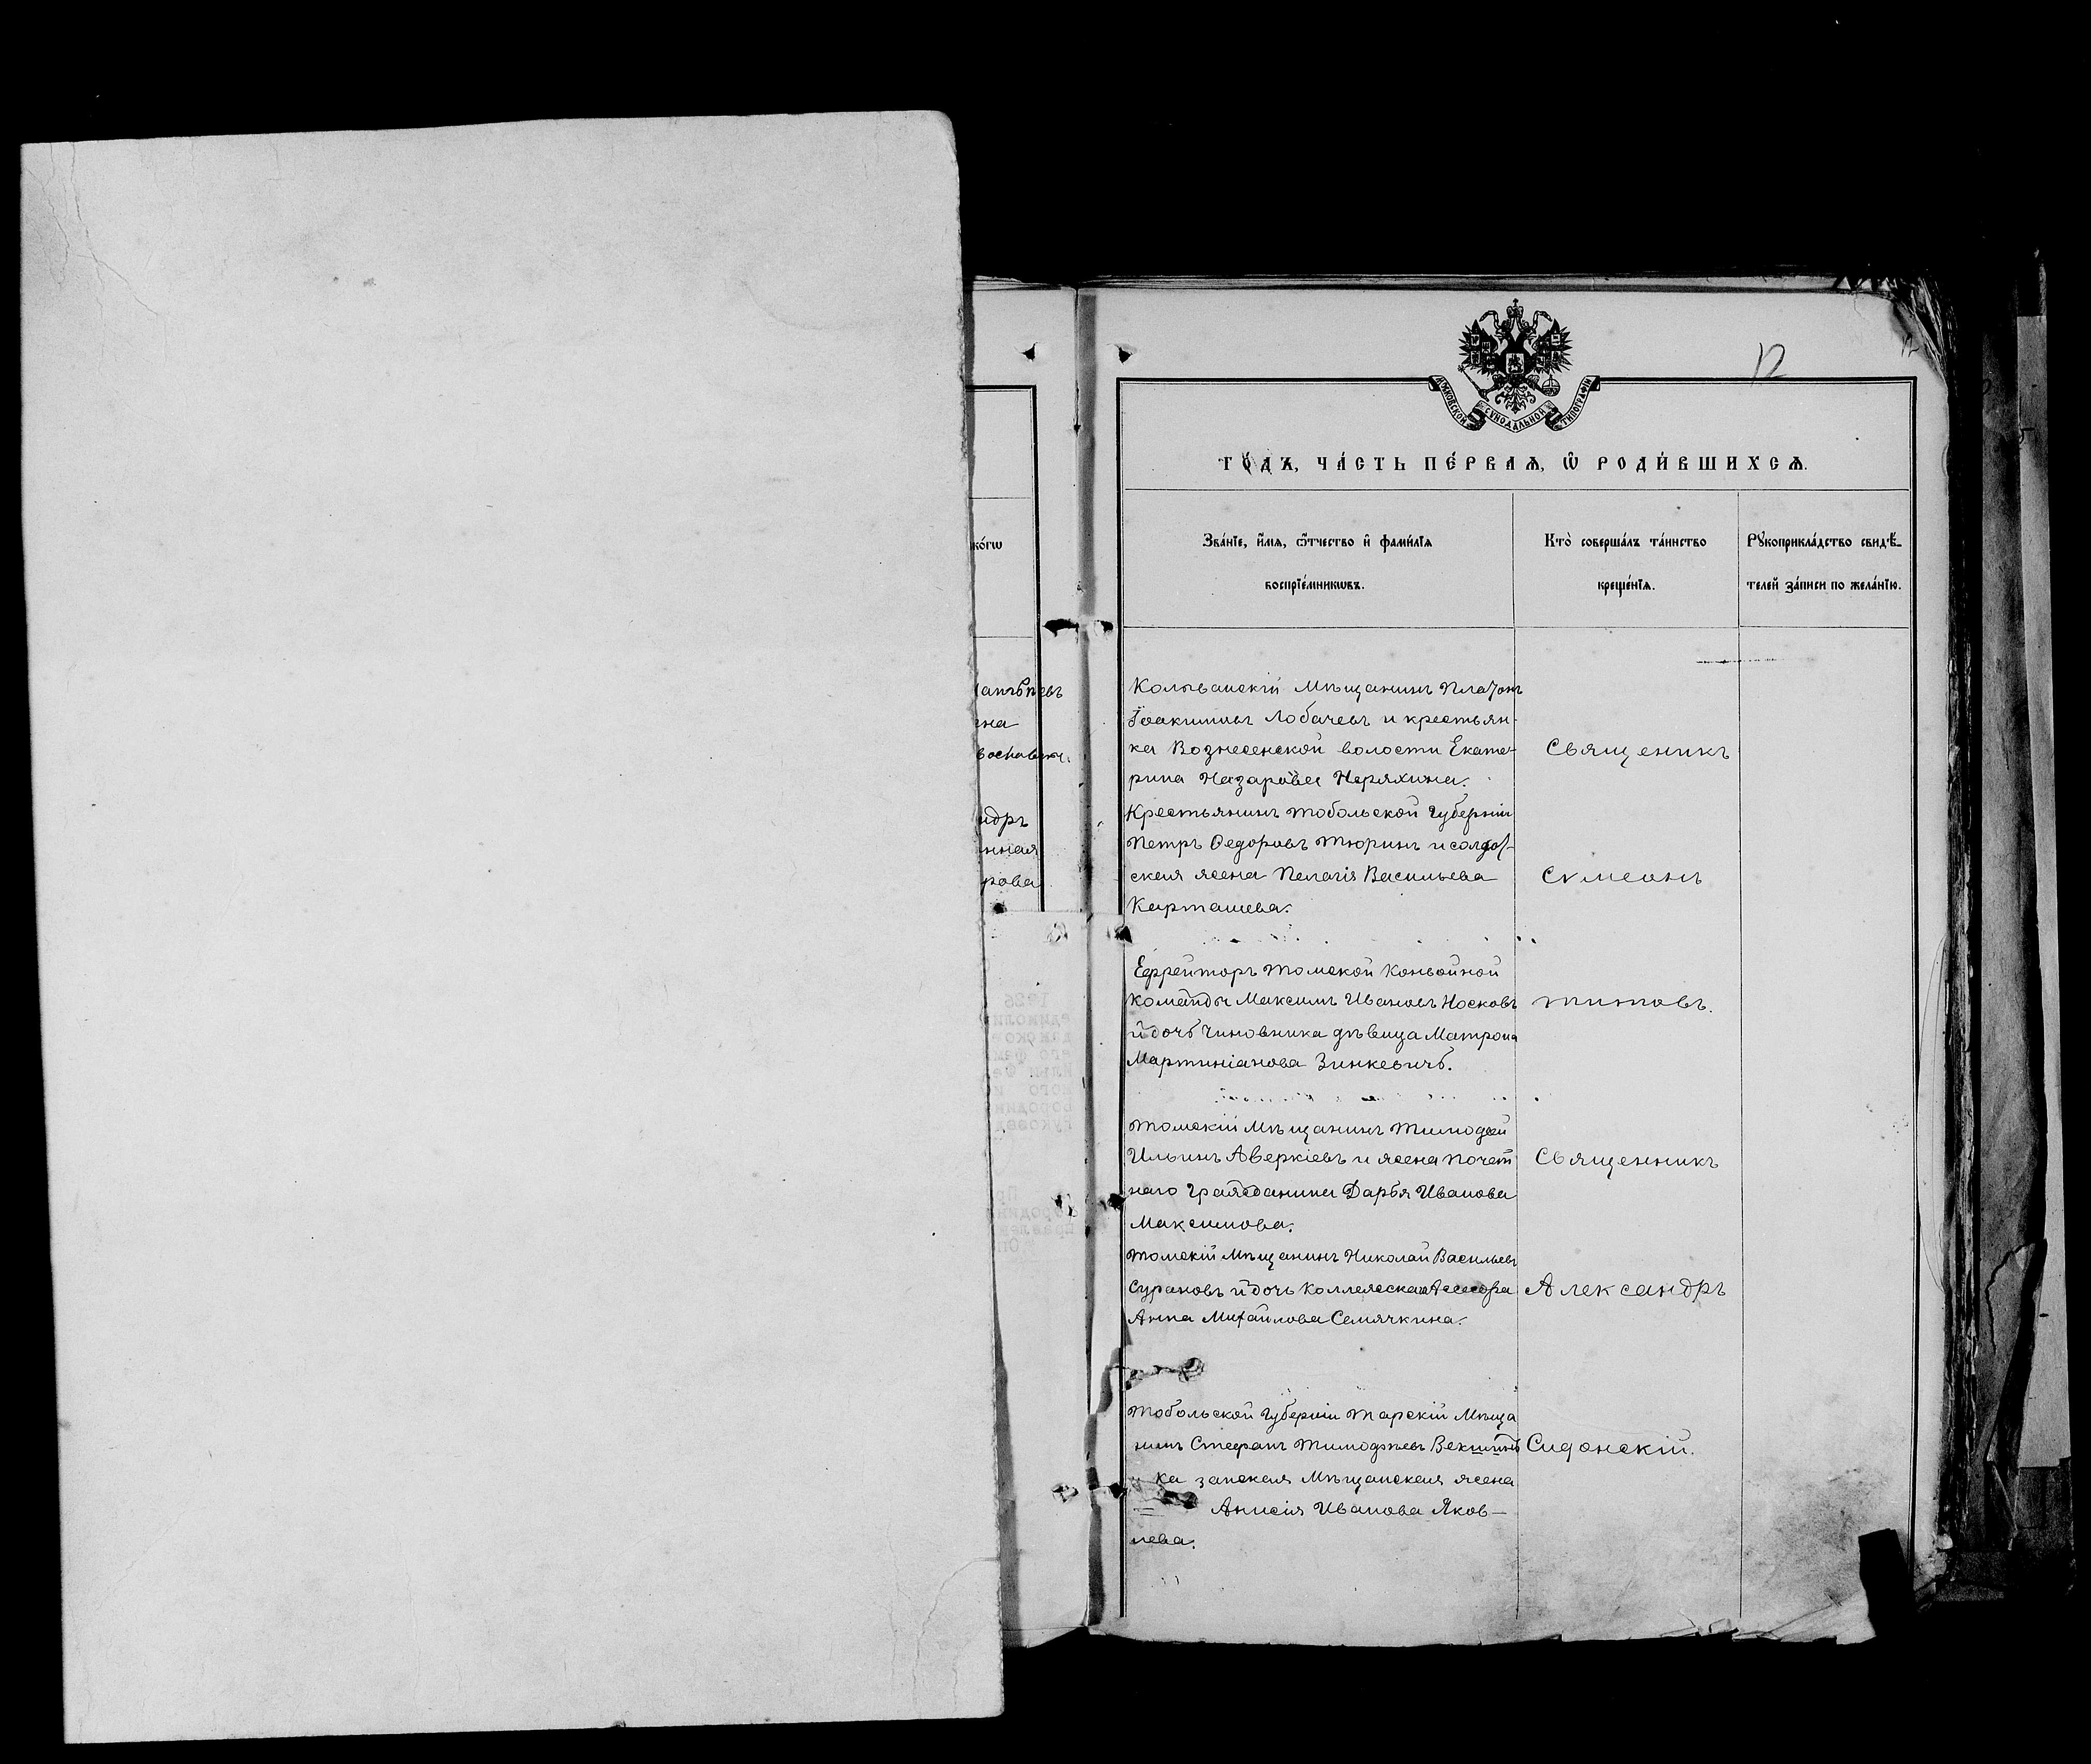 12
МОСКОВСКОЙ СУНОДАЛЬНОЙ ТИПОГРАФІИ
ГО́ДЪ, ЧА́СТЬ ПЕ́РВАѦ, Ѡ҆ РОДИ́ВШИХСѦ.
Зва́нїе, и҆́мѧ, ѻ҆́тчество и҆ фами́лїѧ
воспрїе́мникѡвъ.
Кто̀ соверша́лъ та́инство
креще́нїѧ.
Рꙋкоприкла́дство свидѣ́-
телей за́писи по жела́нїю.
ко́гѡ
на
ндръ
нная
рова
Колыванскій Мѣщанинъ Платонъ
Іоакимовъ Лобачевъ и крестьян-
ка Вознесенской волости Екате-
рина Назарова Неряхина.
Священикъ
Крестьянинъ Тобольской Губерніи
Петръ Ѳедоровъ Тюринъ и солдат-
ская жена Пелагія Васильева
Карташева.
Сѵмеонъ
Ефрейторъ Томской Конвойной
команды Максимъ Ивановъ Носковъ
и дочь Чиновника дѣвица Матрона
Мартиніанова Зинкевичъ.
Титовъ.
Томскій Мѣщанинъ Тимоѳей
Ильинъ Аверкіевъ и жена почет
наго Гражданина Дарья Иванова
Максимова.
Священникъ
Томскій Мѣщанинъ Николай Васильевъ
Сурановъ и дочь Коллежскаго Асесора
Анна Михайлова Семячкина.
Александръ
Тобольской Губерніи Тарскій Мѣща
нинъ Стефанъ Тимоѳеевъ Векшинъ
и Казанская Мѣщанская жена
Анисія Иванова Яков-
лева.
Сидонскій.